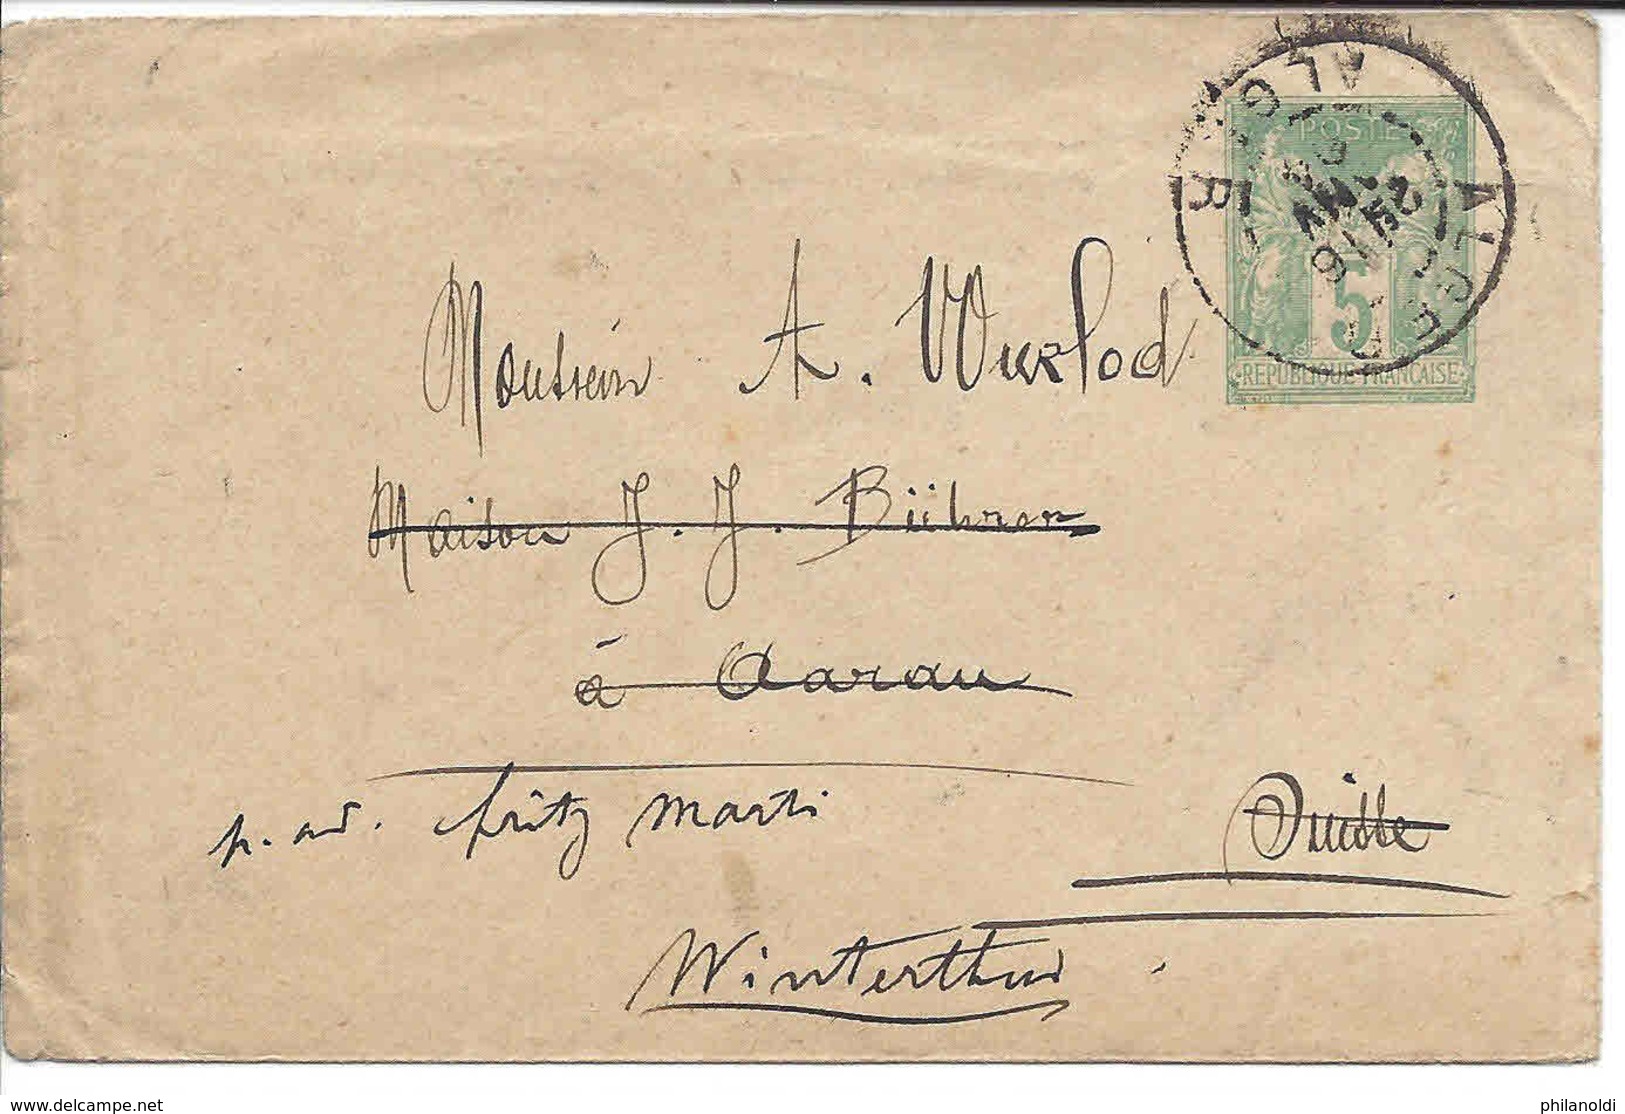 ALGER
ALGER
POSTES
5
RÉPUBLIQUE FRANÇAISE
Monsieur A. Wurlod
Maison J. J. Bührer
à Aarau
Suisse
p. ad. Fritz Marti
Winterthur.
www.delcampe.net
philanoldi